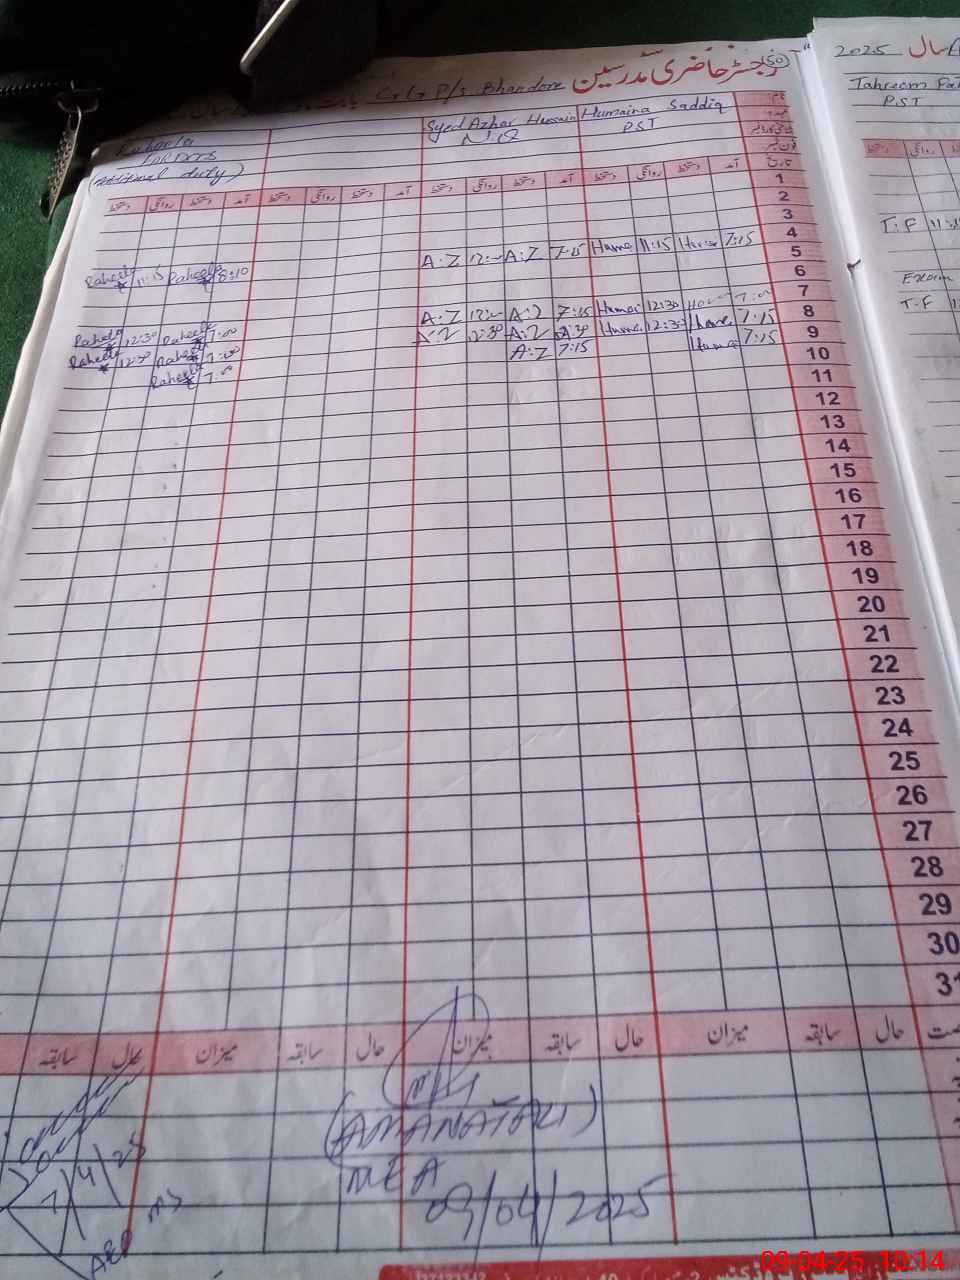 رجسٹر حاضری مدرسین
50
G.G P/s Bhandore
بابت
سال
Humaina Saddiq
PST
Syed Azhar Hussain
N/Q
Raheela
(additional duty)
تاریخ
آمد دستخط روانگی دستخط آمد دستخط روانگی دستخط آمد دستخط روانگی دستخط آمد دستخط روانگی دستخط
1
2
3
4
5
6
7
8
9
10
11
12
13
14
15
16
17
18
19
20
21
22
23
24
25
26
27
28
29
30
31
7:15 Huma 11:15 Huma
7:15 A:Z 12:- A:Z
8:10 Raheela 11:15 Raheela
7:00 Humai 12:30 Humai
7:15 A:Z 12:- A:Z
7:00 Raheela 12:30 Raheela
7:15 Huma 12:30 Huma
A:Z 12:30 A:Z
7:00 Raheela 12:30 Raheela
7:15 Huma
7:15 A:Z
7:00 Raheela
حال سابقہ میزان حال سابقہ میزان حال سابقہ میزان حال سابقہ
(AMANAT ALI)
MEA
09/04/2025
7/4/25
AEO
2025 سال
Tahreem
PST
دستخط روانگی
T.F 11:
Exam
T.F 12:
09-04-25 10:14